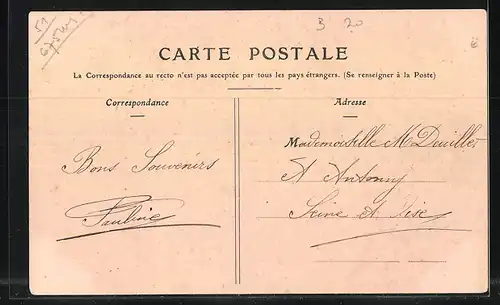 B 20
CARTE POSTALE
La Correspondance au recto n'est pas acceptée par tous les pays étrangers. (Se renseigner à la Poste)
Correspondance
Adresse
Mademoiselle M Deuiller
Bons Souvenirs
A Antony
Pauline
Seine et Oise